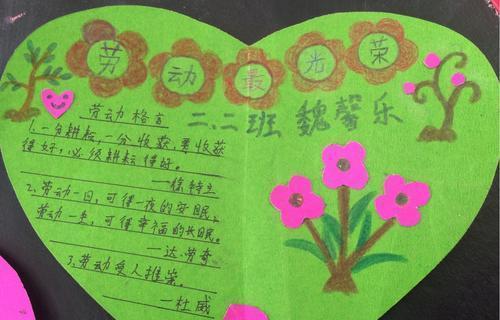 劳动最光荣
二、二班 魏馨乐
劳动格言
1.一分耕耘,一分收获,要收获
得好,必须耕耘得好。
—徐特立
2、劳动一日,可得一夜的安眠,
劳动一生,可得幸福的长眠。
—达·芬奇
3、劳动受人推崇。
—杜威